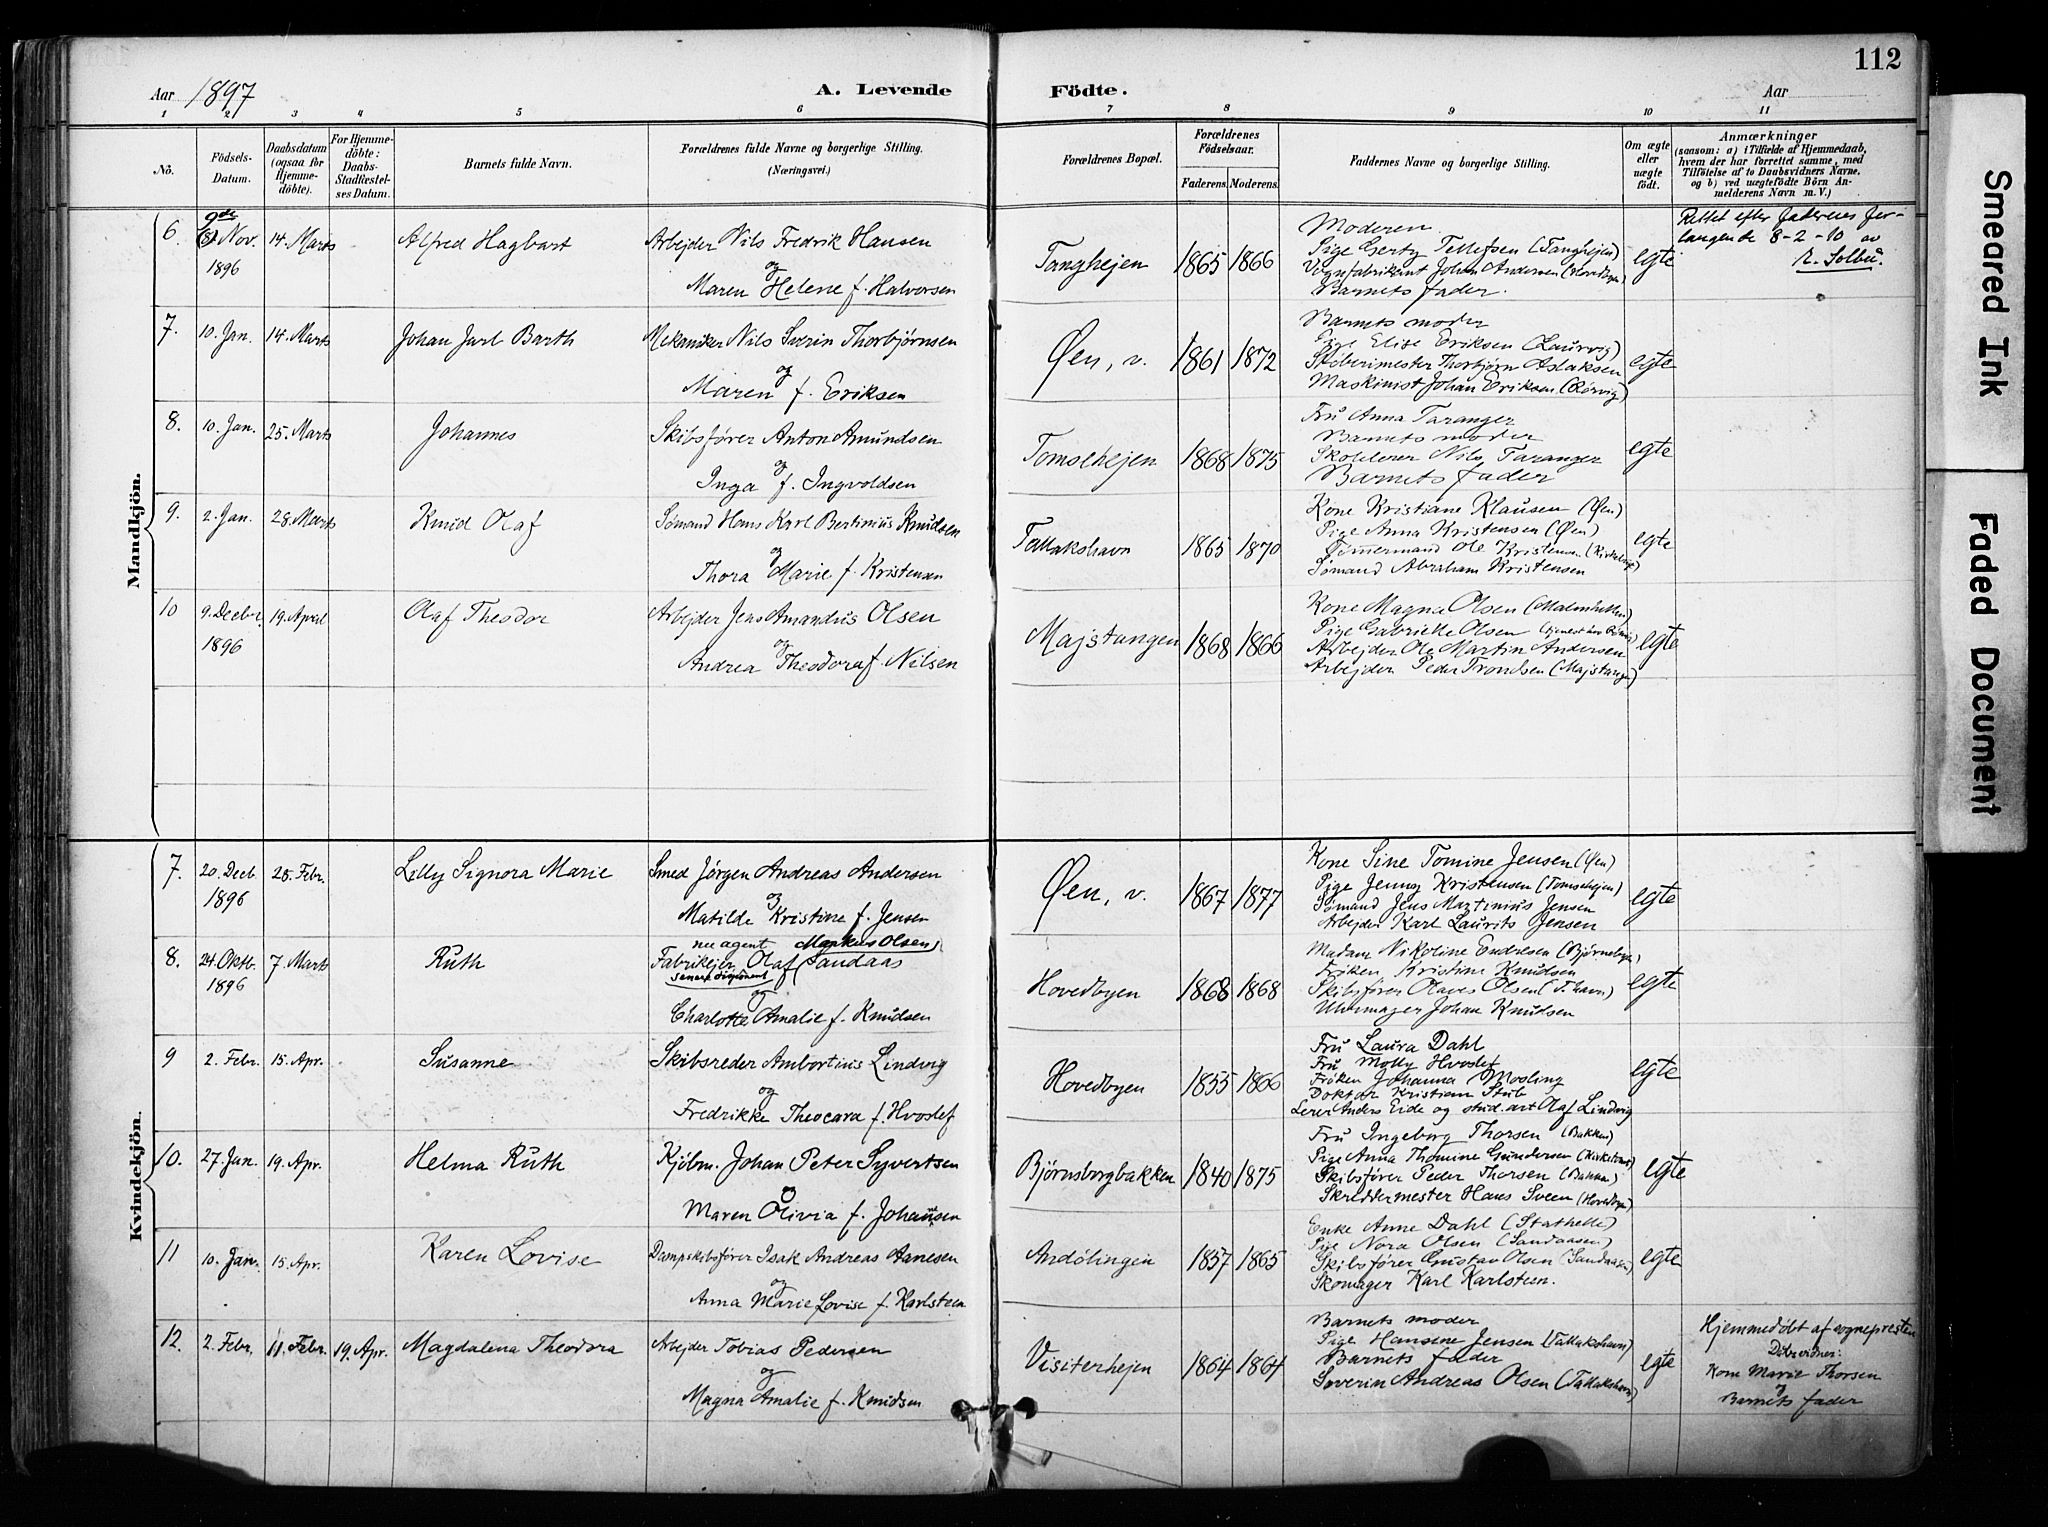 112
Aar 1897
A. Levende Födte.
Aar
1 2 3 4 5 6 7 8 9 10 11
No.
Födsels-Datum.
Daabsdatum (ogsaa for Hjemmedöbte).
For Hjemmedöbte: Daabs-Stadfæstelses Datum.
Barnets fulde Navn.
Forældrenes fulde Navne og borgerlige Stilling. (Næringsvei.)
Forældrenes Bopæl.
Forældrenes Födselsaar.
Faderens. Moderens.
Faddernes Navne og borgerlige Stilling.
Om ægte eller uægte födt.
Anmærkninger
(saasom: a) i Tilfælde af Hjemmedaab, hvem der har forrettet samme, med Tilföielse af to Daabsvidners Navne, og b) ved uægtefödte Börn Anmelderens Navn m. V.)
Mandkjön.
6. 9de Nov. 1896 14. Marts Alfred Hagbart
Arbejder Nils Fredrik Hansen
og
Maren Helene f. Halvorsen
Tanghejen 1865 1866
Moderen.
Pige Gerty Tellefsen (Tanghejen)
Vognfabrikant Johan Andersen (Hovedbyen)
Barnets fader.
egte
Rettet efter faderens forlangende 8-2-10 av
R. Solbu.
7. 10. Jan. 14. Marts Johan Jarl Barth
Mekaniker Nils Sverin Thorbjørnsen
og
Maren f. Eriksen
Øen, v. 1861 1872
Barnets moder
Pige Elise Eriksen (Laurvig)
Støberimester Thorbjørn Aslaksen
Maskinist Johan Eriksen (Rørvig)
egte
8. 10. Jan. 25. Marts Johannes
Skibsfører Anton Amundsen
og
Inga f. Ingvoldsen
Tomsehejen 1868 1875
Fru Anna Taranger
Barnets moder
Skolelerer Nils Taranger
Barnets fader
egte
9. 2. Jan. 28. Marts Knud Olaf
Sømand Hans Karl Bertinius Knudsen
og
Thora Marie f. Kristensen
Tallakshavn 1865 1870
Kone Kristiane Klausen (Øen)
Pige Anna Kristensen (Øen)
Tømmermand Ole Kristensen
Sømand Abraham Kristensen
egte
10 9. Decbr. 1896 19. April Olaf Theodor
Arbejder Jens Amandus Olsen
og
Andrea Theodora f. Nilsen
Majstangen 1868 1866
Kone Magna Olsen (Malmhellen)
Pige Gabrielle Olsen
Arbejder Ole Martin Andersen
Arbejder Peder Trondsen (Majstangen)
egte
Kvindekjön.
7. 20. Decb. 1896 28. Febr. Lilly Signora Marie
Smed Jørgen Andreas Andersen
og
Matilde Kristine f. Jensen
Øen, v. 1867 1877
Kone Sine Tomine Jensen (Øen)
Pige Jenny Kristensen (Tomsehejen)
Sømand Jens Martinius Jensen
Arbejder Karl Laurits Jensen
egte
8. 24. Oktb. 1896 7. Marts Ruth
nu agent Markus Olsen
Fabrikejer Olaf Sandaas
senere disponent
og
Charlotte Amalie f. Knudsen
Hovedbyen 1868 1868
Madam Nikoline Endresen (Bjørnsbgn)
Frøken Kristine Knudsen
Skibsfører Olaves Olsen (T.havn)
Uhrmager Johan Knudsen
egte
9 2. Febr. 15. Apr. Susanne
Skibsreder Ambortius Lindvig
og
Fredrikke Theocara f. Hvoslef
Hovedbyen 1855 1866
Fru Laura Dahl
Fru Molly Hvoslef
Frøken Johanna Mosling
Doktor Kristian Stub
Lerer Anders Eide og stud. art Olaf Lindvig
egte
10. 27. Jan. 19. Apr. Helma Ruth
Kjøbm. Johan Peter Syvertsen
og
Maren Olivia f. Johansen
Bjørnsborgbakken 1840 1875
Fru Ingeborg Thorsen (Bakken)
Pige Anna Thomine Gundersen
Skibsfører Peder Thorsen (Bakken)
Skreddermester Hans Sveen (Hovedbyen)
egte
11 10. Jan. 15. Apr. Karen Lovise
Dampskibsfører Isak Andreas Arnesen
og
Anna Marie Lovise f. Karlsteen
Andølingen 1857 1865
Enke Anne Dahl (Stathelle)
Pige Nora Olsen (Sandaasen)
Skibsfører Gustav Olsen (Sandaasen)
Skomager Karl Karlsteen.
egte
12. 2. Febr. 11. Febr. 19. Apr. Magdalena Theodora
Arbejder Tobias Pedersen
og
Magna Amalie f. Knudsen
Visiterhejen 1864 1864
Barnets moder
Pige Hansine Jensen (Tallakshavn)
Barnets fader
Severin Andreas Olsen (Tallakshavn)
egte
Hjemmedøbt af sognepresten
Døbsvidner:
Kone Marie Thorsen
og
Barnets fader
Smeared Ink
Faded Document